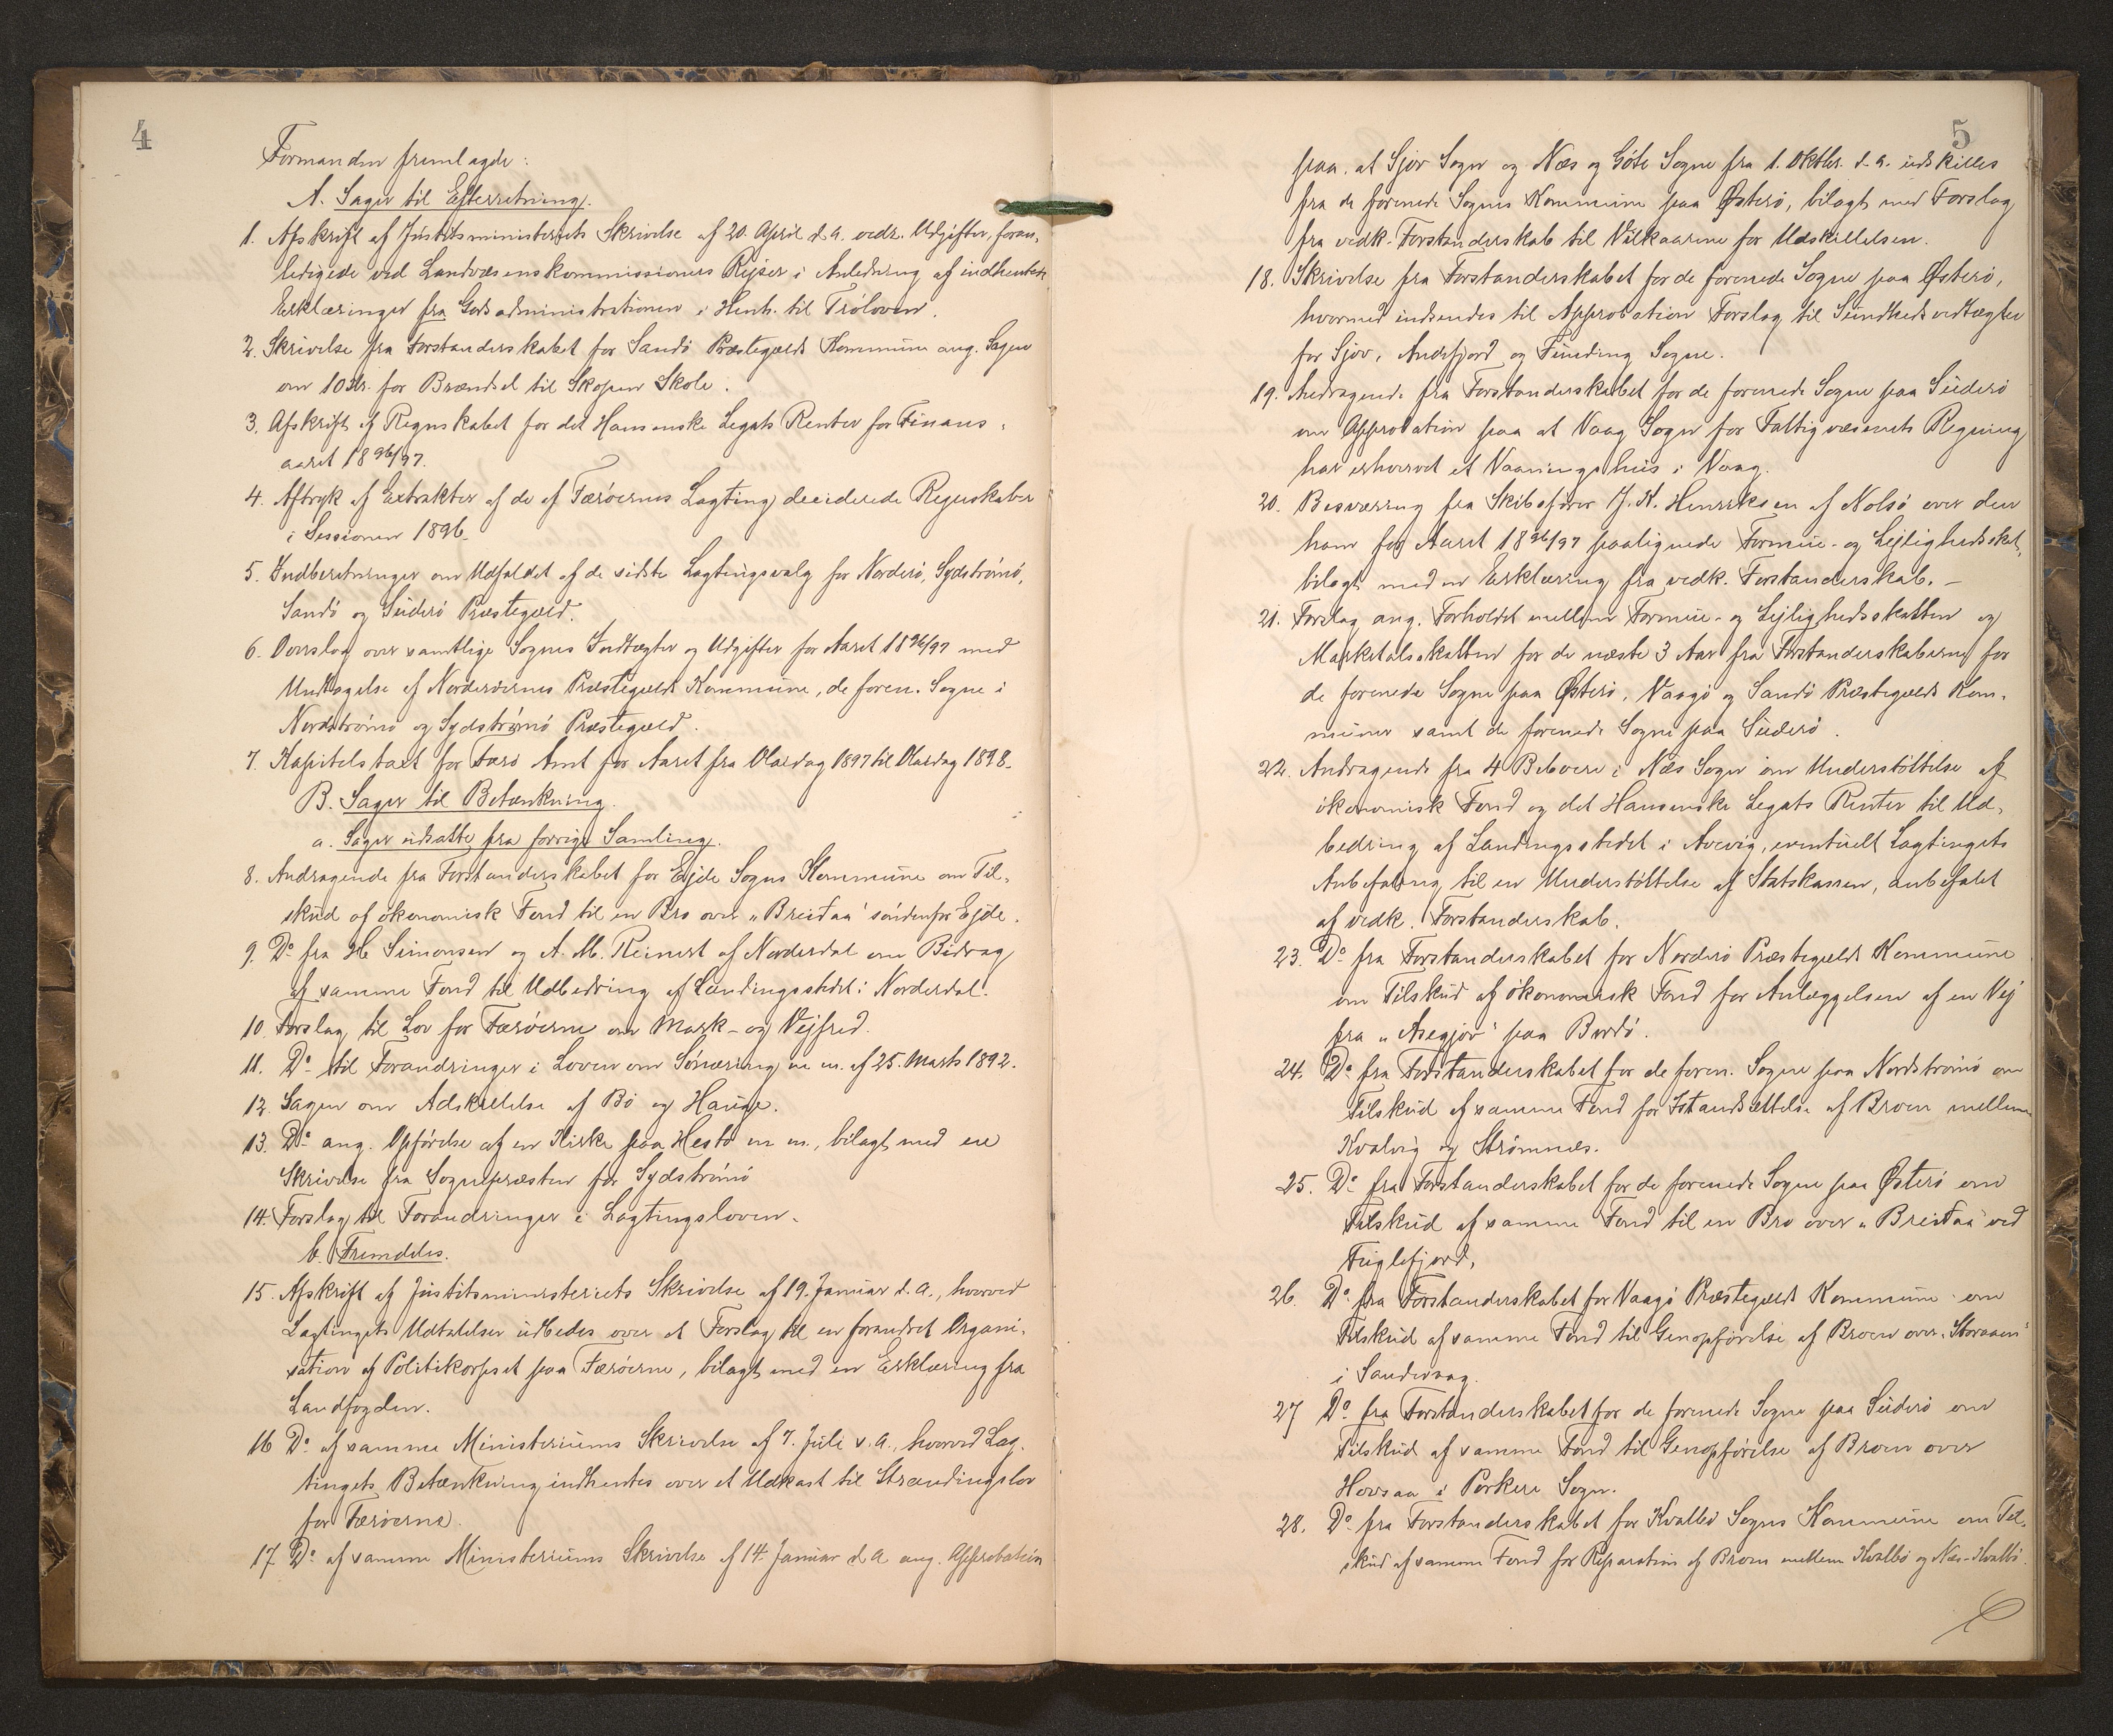 4
Formanden fremlagde:
A. Sager til Efterretning.
1. Afskrift af Justitsministeriets Skrivelse af 20. April d.A. vedr. Udgifter, foran-
ledigede ved Landvæsenskommissioners Rejser i Anledning af indhentede
Erklæringer fra Godsadministrationen i Henh. til Trøloven.
2. Skrivelse fra Forstanderskabet for Sandø Præstegælds Kommune ang. Sagen
om 10 Kr. for Brændsel til Skopen Skole.
3. Afskrift af Regnskabet for det Hansenske Legats Renter for Finans-
aaret 1896/97.
4. Aftryk af Extrakter af de af Færøernes Lagting deciderede Regnskaber
i Sessionen 1896.
5. Indberetninger om Udfaldet af de sidste Lagtingsvalg for Norderø, Sydstrømø,
Sandø og Suderø Præstegæld.
6. Overslag over samtlige Sognes Indtægter og Udgifter for Aaret 1896/97 med
Undtagelse af Norderøernes Præstegælds Kommune, de foren. Sogne i
Nordstrømø og Sydstrømø Præstegæld.
7. Kapitelstaxt for Færø Amt for Aaret fra Olaidag 1897 til Olaidag 1898.
B. Sager til Betænkning.
a. Sager udsatte fra forrige Samling.
8. Andragende fra Forstanderskabet for Ejde Sogns Kommune om Til-
skud af økonomisk Fond til en Bro over "Breidaa" søndenfor Ejde.
9. Do fra H. Simonsen og A. M. Reinert af Norderdal om Bidrag
af samme Fond til Udbedring af Landingsstedet i Norderdal.
10. Forslag til Lov for Færøerne om Mark- og Vejfred.
11. Do til Forandringer i Loven om Sønæring m.m. af 25. Marts 1892.
12. Sagen om Adskillelse af Bø og Hauge.
13. Do ang. Opførelse af en Kirke paa Hestø m.m., bilagt med en
Skrivelse fra Sognepræsten for Sydstrømø
14. Forslag til Forandringer i Lagtingsloven.
b. Fremdeles.
15. Afskrift af Justitsministeriets Skrivelse af 19. Januar d.A., hvorved
Lagtingets Udtalelser udbedes over et Forslag til en forandret Organi-
sation af Politikorpset paa Færøerne, bilagt med en Erklæring fra
Landfogden.
16 Do af samme Ministeriums Skrivelse af 7. Juli s.A., hvorved Lag-
tingets Betænkning indhentes over et Udkast til Strandingslov
for Færøerne.
17. Do af samme Ministeriums Skrivelse af 14. Januar d.A. ang. Approbation
5
paa, at Sjov Sogn og Næs og Gøte Sogne fra 1. Oktbr. d.A. udskilles
fra de forenede Sognes Kommune paa Østerø, bilagt med Forslag
fra vedk. Forstanderskab til Vilkaarene for Udskillelsen.
18. Skrivelse fra Forstanderskabet for de forenede Sogne paa Østerø,
hvormed indsendes til Approbation Forslag til Sundhedsvedtægter
for Sjov, Andefjord og Funding Sogne.
19. Andragende fra Forstanderskabet for de forenede Sogne paa Suderø
om Approbation paa at Vaag Sogn for Fattigvæsenets Regning
har erhvervet et Vaaningshus i Vaag.
20. Besværing fra Skibsfører J. K. Henriksen af Nolsø over den
ham for Aaret 1896/97 paalignede Formue- og Lejlighedsskat,
bilagt med en Erklæring fra vedk. Forstanderskab. –
21. Forslag ang. Forholdet mellem Formue- og Lejlighedsskatten og
Marketalsskatten for de næste 3 Aar fra Forstanderskaberne for
de forenede Sogne paa Østerø, Vaagø og Sandø Præstegælds Kom-
muner samt de forenede Sogne paa Suderø.
22. Andragende fra 4 Beboere i Næs Sogn om Understøttelse af
økonomisk Fond og det Hansenske Legats Renter til Ud-
bedring af Landingsstedet i Avevig, eventuelt Lagtingets
Anbefaling til en Understøttelse af Statskassen, anbefalet
af vedk. Forstanderskab.
23. Do fra Forstanderskabet for Norderø Præstegælds Kommune
om Tilskud af økonomisk Fond for Anlæggelsen af en Vej
fra "Asegjov" paa Bordø.
24. Do fra Forstanderskabet for de foren. Sogne paa Nordstrømø om
Tilskud af samme Fond for Istandsættelse af Broen mellem
Kvalvig og Strømnæs.
25. Do fra Forstanderskabet for de forenede Sogne paa Østerø om
Tilskud af samme Fond til en Bro over "Breidaa" ved
Fuglefjord.
26. Do fra Forstanderskabet for Vaagø Præstegælds Kommune om
Tilskud af samme Fond til Genopførelse af Broen over "Storaaen"
i Sandevaag.
27 Do fra Forstanderskabet for de forenede Sogne paa Suderø om
Tilskud af samme Fond til Genopførelse af Broen over
Hovsaa i Porkere Sogn.
28. Do fra Forstanderskabet for Kvalbø Sogns Kommune om Til-
skud af samme Fond for Reparation af Broen mellem Kvalbø og Næs-Kvalbø.